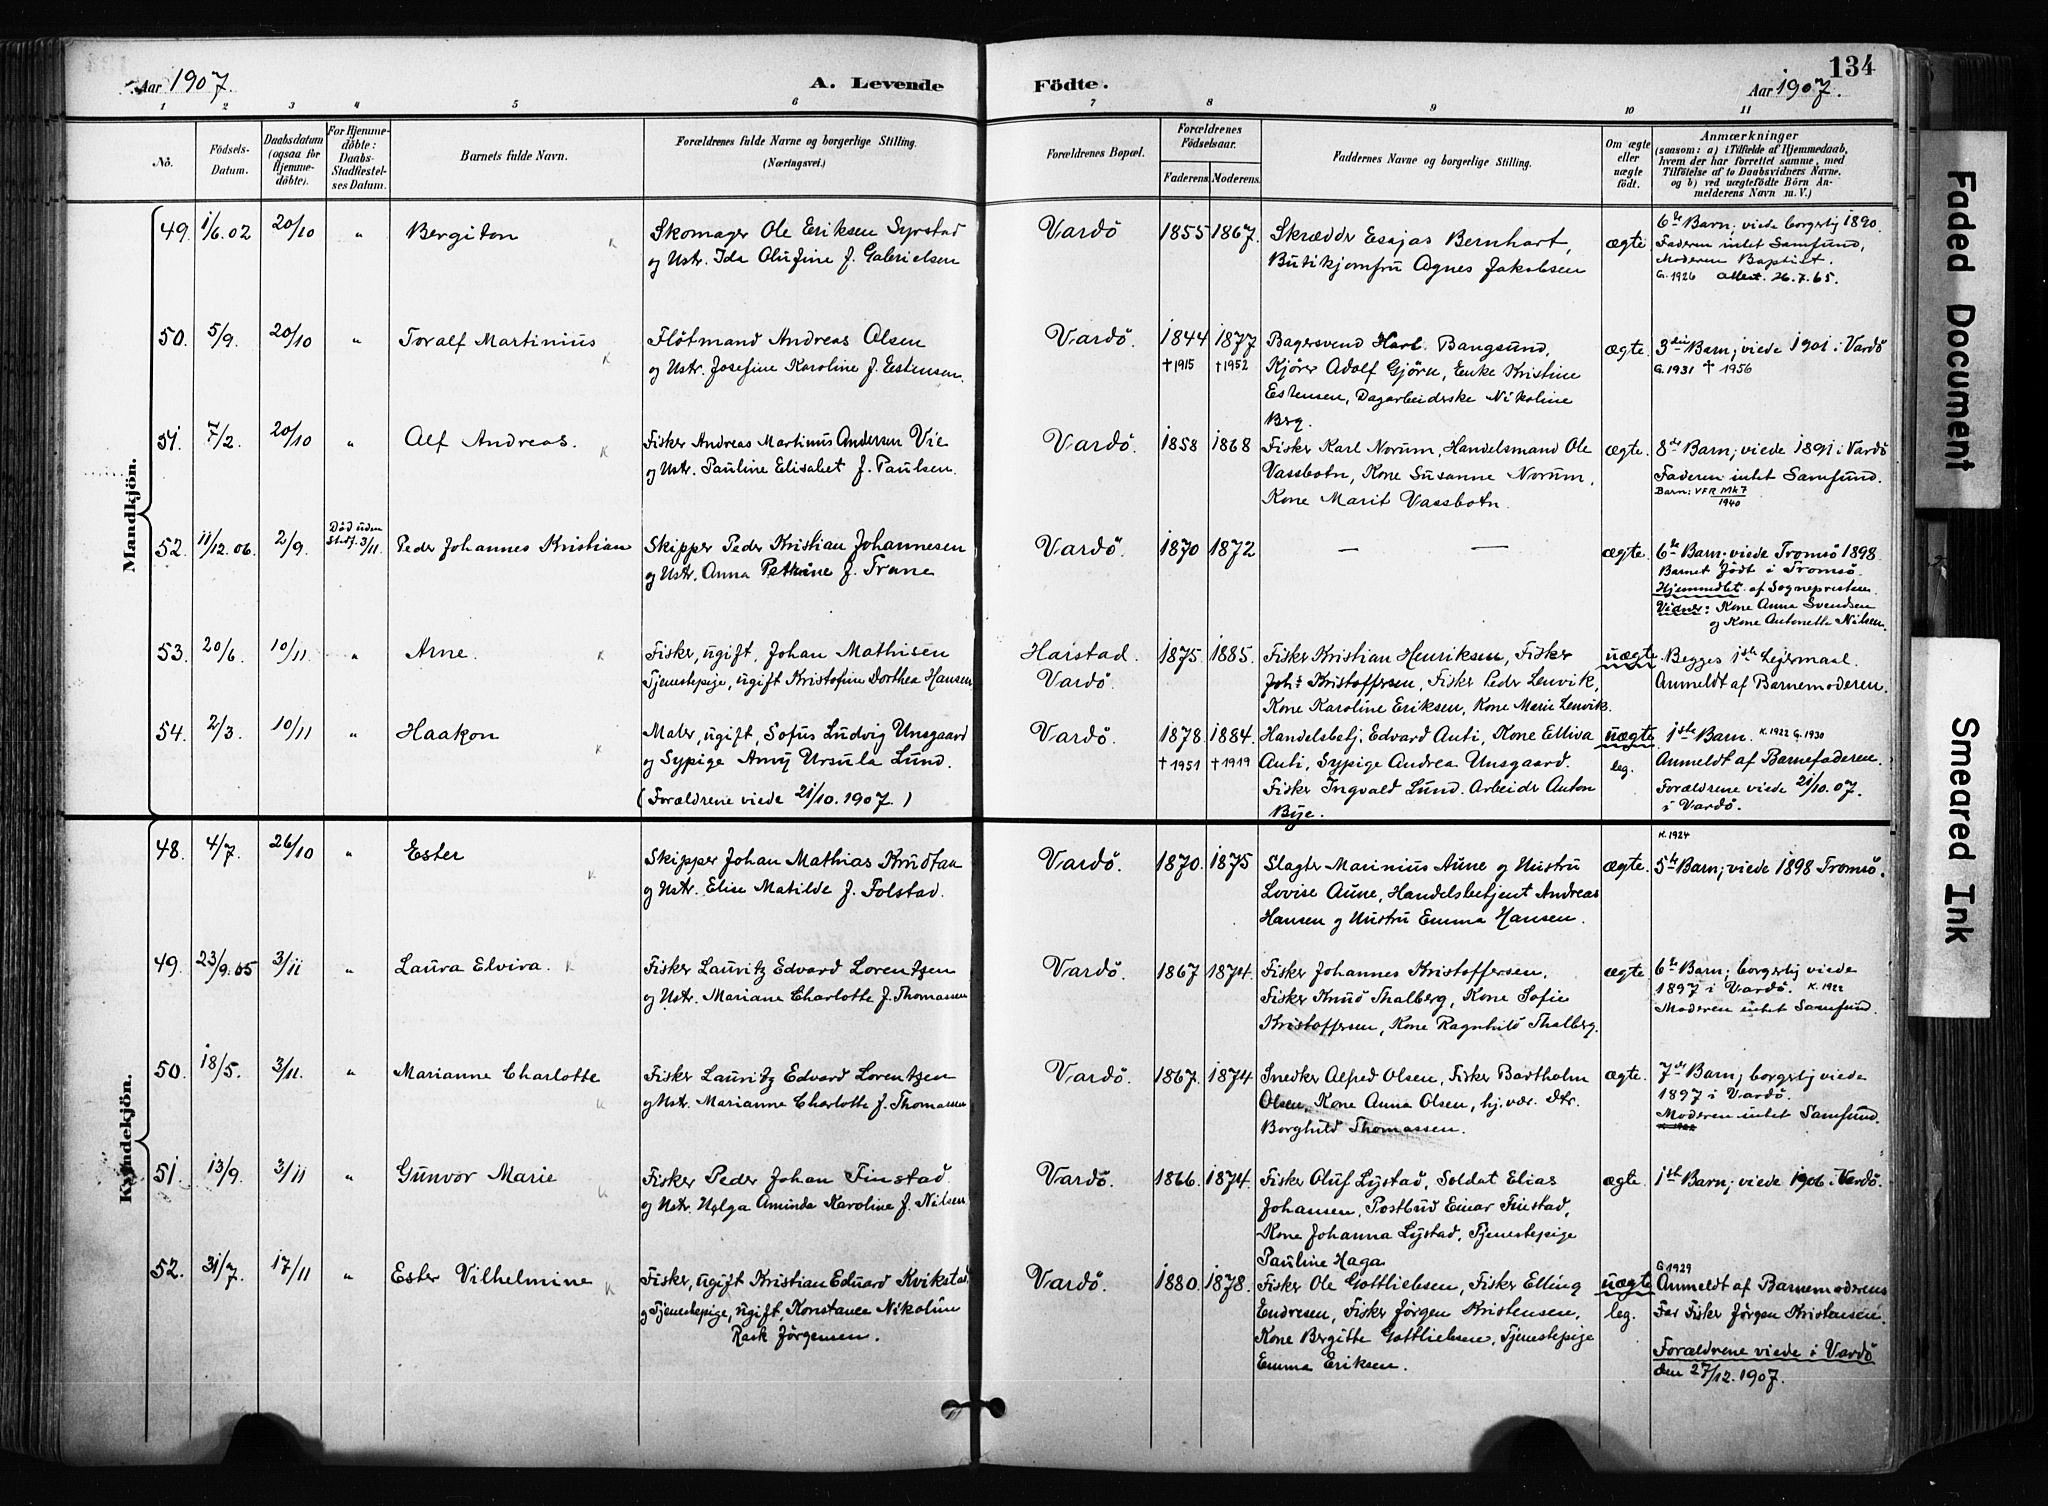 134
Aar 1907.
A. Levende
Födte.
Aar 1907.
1 2 3 4 5 6 7 8 9 10 11
No.
Födsels-
Datum.
Daabsdatum
(ogsaa for
Hjemme-
döbte).
For Hjemme-
döbte:
Daabs-
Stadfæstel-
ses Datum.
Barnets fulde Navn.
Forældrenes fulde Navne og borgerlige Stilling.
(Næringsvei.)
Forældrenes Bopæl.
Forældrenes
Födselsaar.
Faderens. Moderens.
Faddernes Navne og borgerlige Stilling.
Om ægte
eller
uægte
födt.
Anmærkninger
(saasom: a) i Tilfælde af Hjemmedaab,
hvem der har forrettet samme, med
Tilföielse af to Daabsvidners Navne,
og b) ved uægtefödte Börn An-
melderens Navn m. V.)
Mandkjön.
49. 1/6.02 20/10 " Bergiton
Skomager Ole Eriksen Syrstad
og Ustr. Ida Olufine f. Gabrielsen
Vardö 1855 1867.
Skrædder Esajas Bernhart,
Butikjomfru Agnes Jakobsen
ægte
6te Barn; viede borgerlig 1890.
Faderen intet Samfund,
Moderen Baptist.
G. 1926 Attest. 26.7.65.
50. 5/9. 20/10 " Toralf Martinius
Flötmand Andreas Olsen
og Ustr. Josefine Karoline f. Estensen.
Vardö. 1844 1877
† 1915 † 1952
Bagersvend Harl. Bangsund,
Kjörer Adolf Gjörn, Enke Kristine
Estensen, Dagarbeiderske Nikoline
Berg.
ægte.
3die Barn; viede 1901 i Vardö
G. 1931 † 1956
51. 7/2. 20/10 " Alf Andreas.
Fisker Andreas Martinus Andersen Vie
og Ustr. Pauline Elisabet f. Paulsen.
Vardö. 1858 1868
Fisker Karl Norum, Handelsmand Ole
Vassbotn, Kone Susanne Norum,
Kone Marit Vassbotn.
ægte.
8de Barn; viede 1891 i Vardö
Faderen intet Samfund.
Barn: VFR Mk7
1940
52. 11/12.06. 2/9. Död uden
Stadf. 3/11. Peder Johannes Kristian
Skipper Peder Kristian Johannesen
og Ustr. Anna Petrine f. Trane
Vardö. 1870 1872
— —
ægte.
6te Barn. viede Tromsö 1898.
Barnet födt i Tromsö.
Hjemmedbt. af Sognepresten
Vidner: Kone Anna Svendsen
og Kone Antonette Nilsen.
53. 20/6. 10/11. " Arne.
Fisker, ugift, Johan Mathisen
Tjenestepige, ugift Kristofine Dorthea Hansen
Harstad.
Vardö. 1875. 1885.
Fisker Kristian Henriksen, Fisker
Joh: Kristoffersen, Fisker Peder Lenvik,
Kone Karoline Eriksen, Kone Marie Lenvik.
uægte
Begges 1ste Lejermaal.
Anmeldt af Barnemoderen.
54. 2/3. 10/11. " Haakon
Maler, ugift, Sofus Ludvig Unsgaard
og Sypige Amy Ursula Lund.
(Forældrene viede 21/10. 1907.)
Vardö. 1878 1884.
† 1951 † 1919
Handelsbetj. Edvard Anti, Kone Elliva
Anti, Sypige Andrea Unsgaard.
Fisker Ingvald Lund. Arbeider Anton
Bye.
uægte
leg.
1ste Barn. K. 1922 G. 1930
Anmeldt af Barnefaderen.
Forældrene viede 21/10. 07.
i Vardö.
Kvindekjön.
48. 4/7. 26/10 " Ester
Skipper Johan Mathias Knudtan
og Ustr. Elise Matilde f. Folstad.
Vardö. 1870. 1875
Slagter Marinius Aune og Hustru
Lovise Aune, Handelsbetjent Andreas
Hansen og Hustru Emma Hansen.
ægte.
K. 1924
5te Barn; viede 1898 Tromsö.
49. 23/9.05 3/11 " Laura Elvira.
Fisker Lauritz Edvard Lorentzen
og Ustr. Mariane Charlotte f. Thomassen
Vardö. 1867 1874.
Fisker Johannes Kristoffersen,
Fisker Knud Thalberg, Kone Sofie
Kristoffersen, Kone Ragnhild Thalberg.
ægte.
6te Barn; borgerlig viede
1897 i Vardö. K. 1922
Moderen intet Samfund.
50. 18/5. 3/11. " Marianne Charlotte
Fisker Lauritz Edvard Lorentzen
og Ustr. Marianne Charlotte f. Thomassen
Vardö. 1867. 1874
Snedker Alfred Olsen, Fisker Bartholm
Olsen, Kone Anna Olsen, hj. vær. Dtr.
Borghild Thomassen.
ægte.
7de Barn; borgerlig viede
1897 i Vardö.
Moderen intet Samfund.
51. 13/9. 3/11 " Gunvor Marie
Fisker Peder Johan Finstad.
og Ustr. Helga Aminda Karoline f. Nilsen
Vardö. 1866. 1874.
Fisker Oluf Lystad, Soldat Elias
Johansen, Postbud Einar Finstad,
Kone Johanna Lystad, Tjenestepige
Pauline Haga
ægte.
1ste Barn; viede 1906 i Vardö.
52. 31/7. 17/11 " Ester Vilhelmine
Fisker, ugift Kristian Edvard Kvikstad
og Tjenestepige, ugift, Konstance Nikoline
Rask Jörgensen.
Vardö. 1880. 1878.
Fisker Ole Gottliebsen, Fisker Elling
Endresen, Fisker Jörgen Kristensen,
Kone Bergitte Gottliebsen, Tjenestepige
Emma Eriksen.
uægte
leg.
G 1929
Anmeldt af Barnemoderens
Far Fisker Jörgen Kristensen.
Forældrene viede i Vardö
den 27/12. 1907.
Faded Document
Smeared Ink